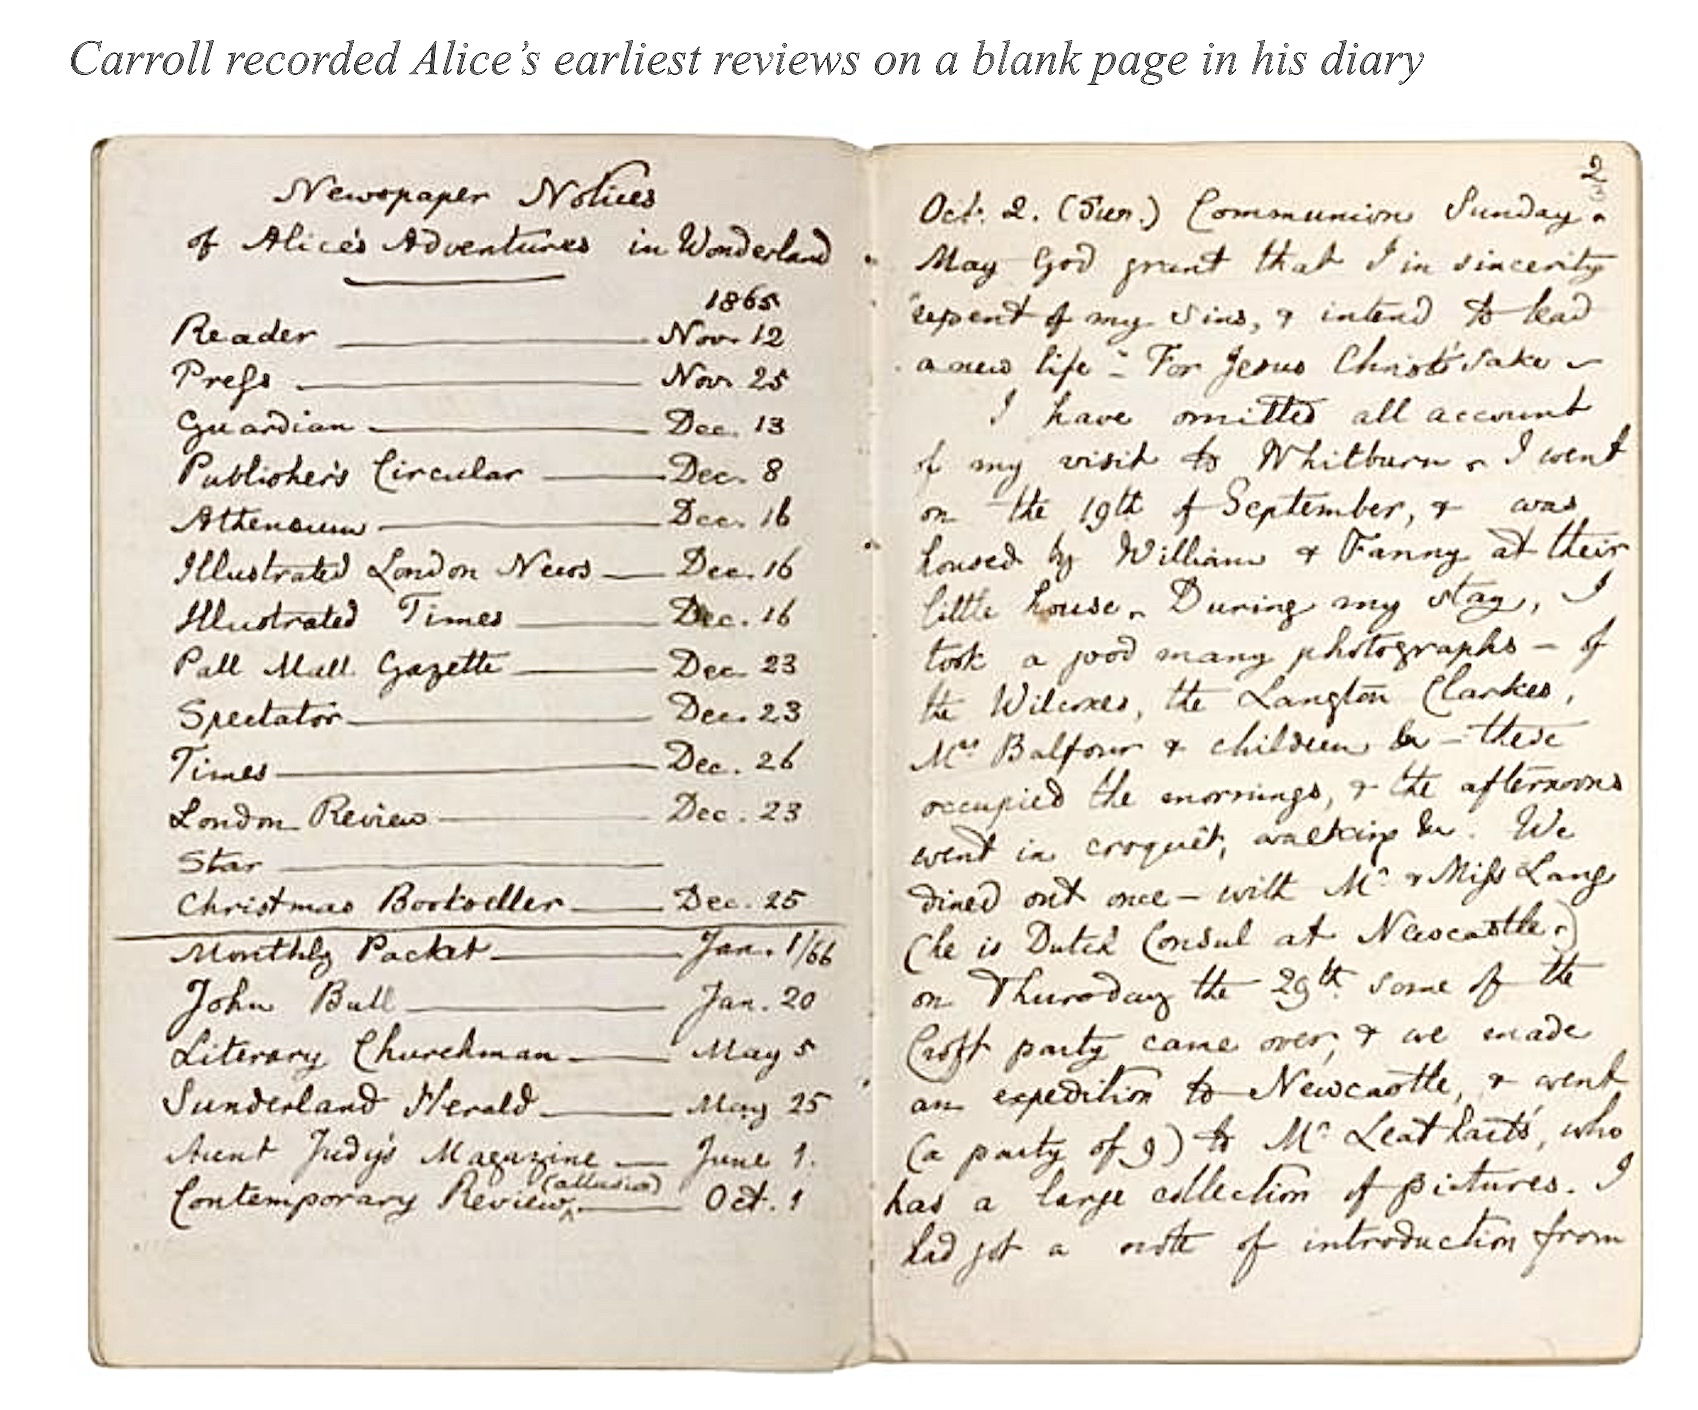 Carroll recorded Alice's earliest reviews on a blank page in his diary
Newspaper Notices
of Alice's Adventures in Wonderland
1865
Reader — Nov. 12
Press — Nov. 25
Guardian — Dec. 13
Publisher's Circular — Dec. 8
Atheneum — Dec. 16
Illustrated London News — Dec. 16
Illustrated Times — Dec. 16
Pall Mall Gazette — Dec. 23
Spectator — Dec. 23
Times — Dec. 26
London Review — Dec. 23
Star —
Christmas Bookseller — Dec. 25
Monthly Packet — Jan. 1/66
John Bull — Jan. 20
Literary Churchman — May 5
Sunderland Herald — May 25
Aunt Judy's Magazine — June 1.
Contemporary Review (allusion) — Oct. 1
2
Oct. 2. (Sun.) Communion Sunday.
May God grant that I in sincerity
repent of my sins, & intend to lead
a new life - For Jesus Christ's sake -
I have omitted all account
of my visit to Whitburn. I went
on the 19th of September, & was
housed by William & Fanny at their
little house. During my stay, I
took a good many photographs - of
the Wilcoxes, the Langton Clarkes,
Mrs Balfour & children &c - these
occupied the mornings, & the afternoons
went in croquêt, walking &c. We
dined out once - with Mr & Miss Lang
(he is Dutch Consul at Newcastle.)
on Thursday the 29th some of the
Croft party came over, & we made
an expedition to Newcastle, & went
(a party of 9) to Mr Leathart's, who
has a large collection of pictures. I
had got a note of introduction from